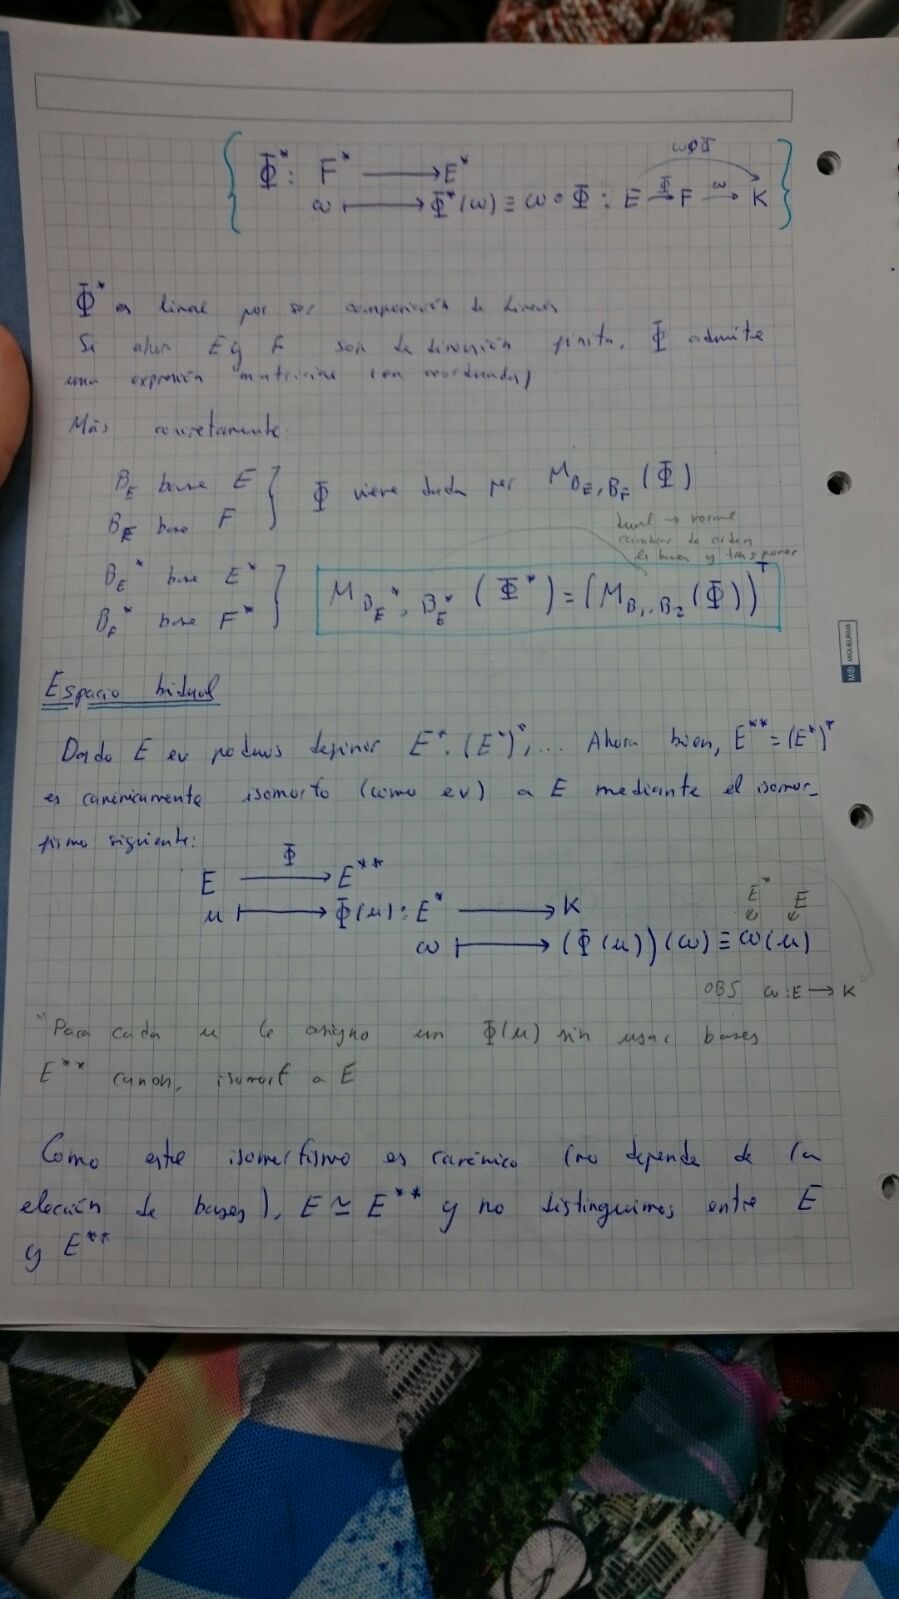 Φ*: F* → E*
ω∘Φ
ω ↦ Φ*(ω) ≡ ω∘Φ : E →Φ F →ω K
Φ* es lineal por ser composición de lineales
Si ahora E y F son de dimensión finita, Φ admite
una expresión matricial (en coordenadas)
Más concretamente:
B_E base E
B_F base F
Φ viene dada por M_{B_E, B_F}(Φ)
dual → normal
cambiar de orden
la bases y trasponer
B_E* base E*
B_F* base F*
M_{B_F*, B_E*}(Φ*) = (M_{B_1, B_2}(Φ))^T
Espacio bidual
Dado E ev podemos definir E*, (E*)*, ... Ahora bien, E** = (E*)*
es canónicamente isomorfo (como ev) a E mediante el isomor_
fismo siguiente:
E →Φ E**
u ↦ Φ(u) : E* → K
E* E
ω ↦ (Φ(u))(ω) ≡ ω(u)
OBS ω : E → K
"Para cada u le asigno un Φ(u) sin usar bases
E** canon, isomorf a E
Como este isomorfismo es canónico (no depende de la
elección de bases), E ≃ E** y no distinguimos entre E
y E**
MIQUELRIUS